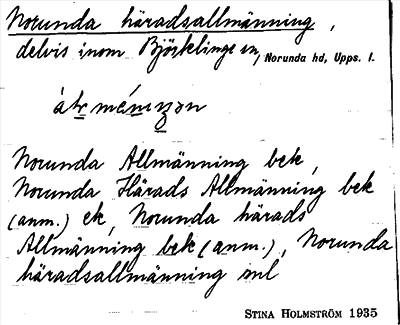 Norunda häradsallmänning,
delvis inom Björklinge sn, Norunda hd, Upps. l.
Norunda Allmänning bek,
Norunda Härads Allmänning bek
(anm.) ek, Norunda härads
Allmänning bek (anm.), Norunda
häradsallmänning sml
STINA HOLMSTRÖM 1935